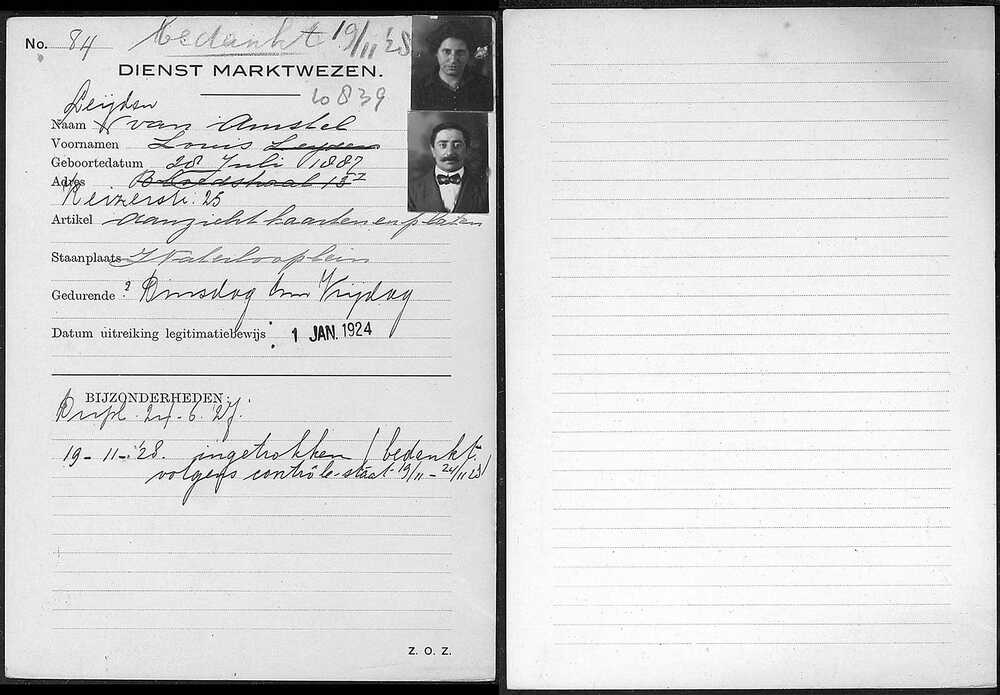 No. 84 bedankt 19/11 '28
DIENST MARKTWEZEN.
10839
Leijden
Naam van Amstel
Voornamen Louis Leyden
Geboortedatum 28 Juli 1887
Adres
Keizerstr. 25
Artikel aanzichtkaarten en platen
Staanplaats Waterlooplein
Gedurende ? Dinsdag t/m Vrijdag
Datum uitreiking legitimatiebewijs : 1 JAN. 1924
BIJZONDERHEDEN:
Dupl. 24-6-'27.
19-11-'28. ingetrokken / bedankt
volgens contrôle-staat 19/11 - 24/11 28/
Z. O. Z.